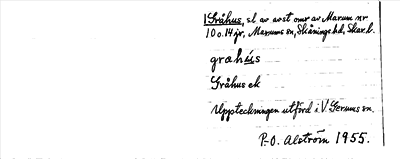 Gråhus, sl av avst omr av Marum nr
10 o. 14 jr, Marums sn, Skånings hd, Skar. l.
grahús
Gråhus ek
Uppteckningen utförd i V. Gerums sn.
P-O. Alström 1955.